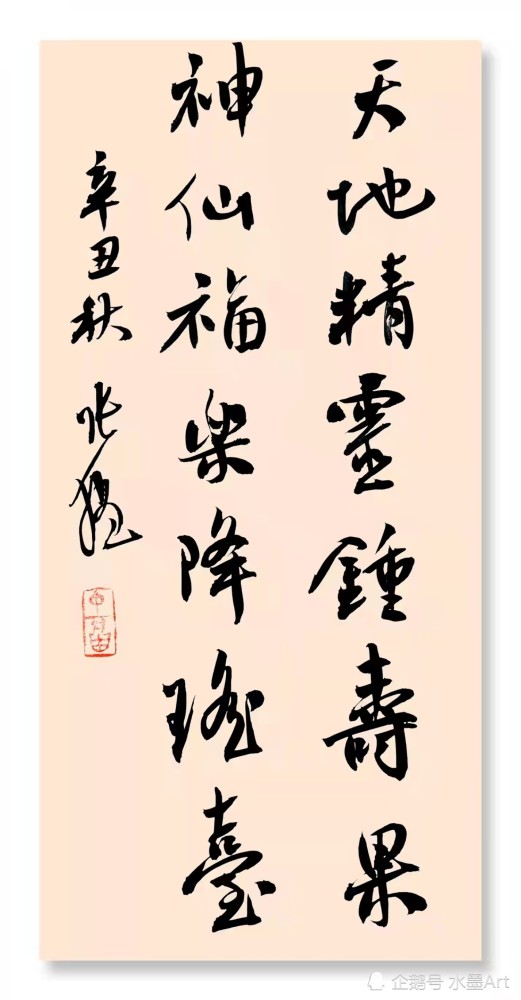 天地精靈鍾壽果
神仙福樂降瑤臺
辛丑秋
企鹅号 水墨Art